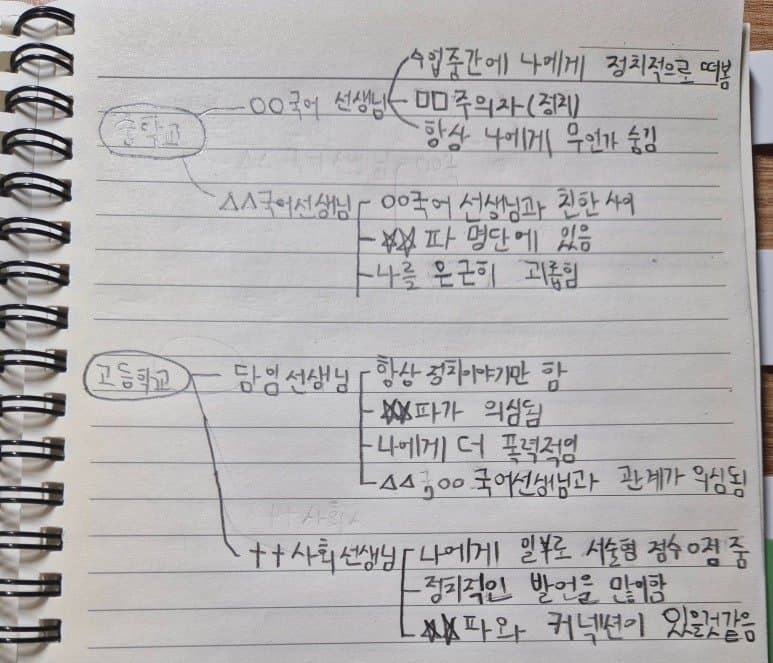 수업중간에 나에게 정치적으로 떠봄
중학교 ㅇㅇ국어 선생님 ㅁㅁ주의자(정치)
항상 나에게 무언가 숨김
△△국어선생님 ㅇㅇ국어 선생님과 친한 사이
☆☆파 명단에 있음
나를 은근히 괴롭힘
고등학교 담임선생님 항상 정치이야기만 함
☆☆파가 의심됨
나에게 더 폭력적임
△△,ㅇㅇ 국어선생님과 관계가 의심됨
++사회
++사회선생님 나에게 일부로 서술형 점수 0점 줌
정치적인 발언을 많이함
☆☆파와 커넥션이 있을것같음